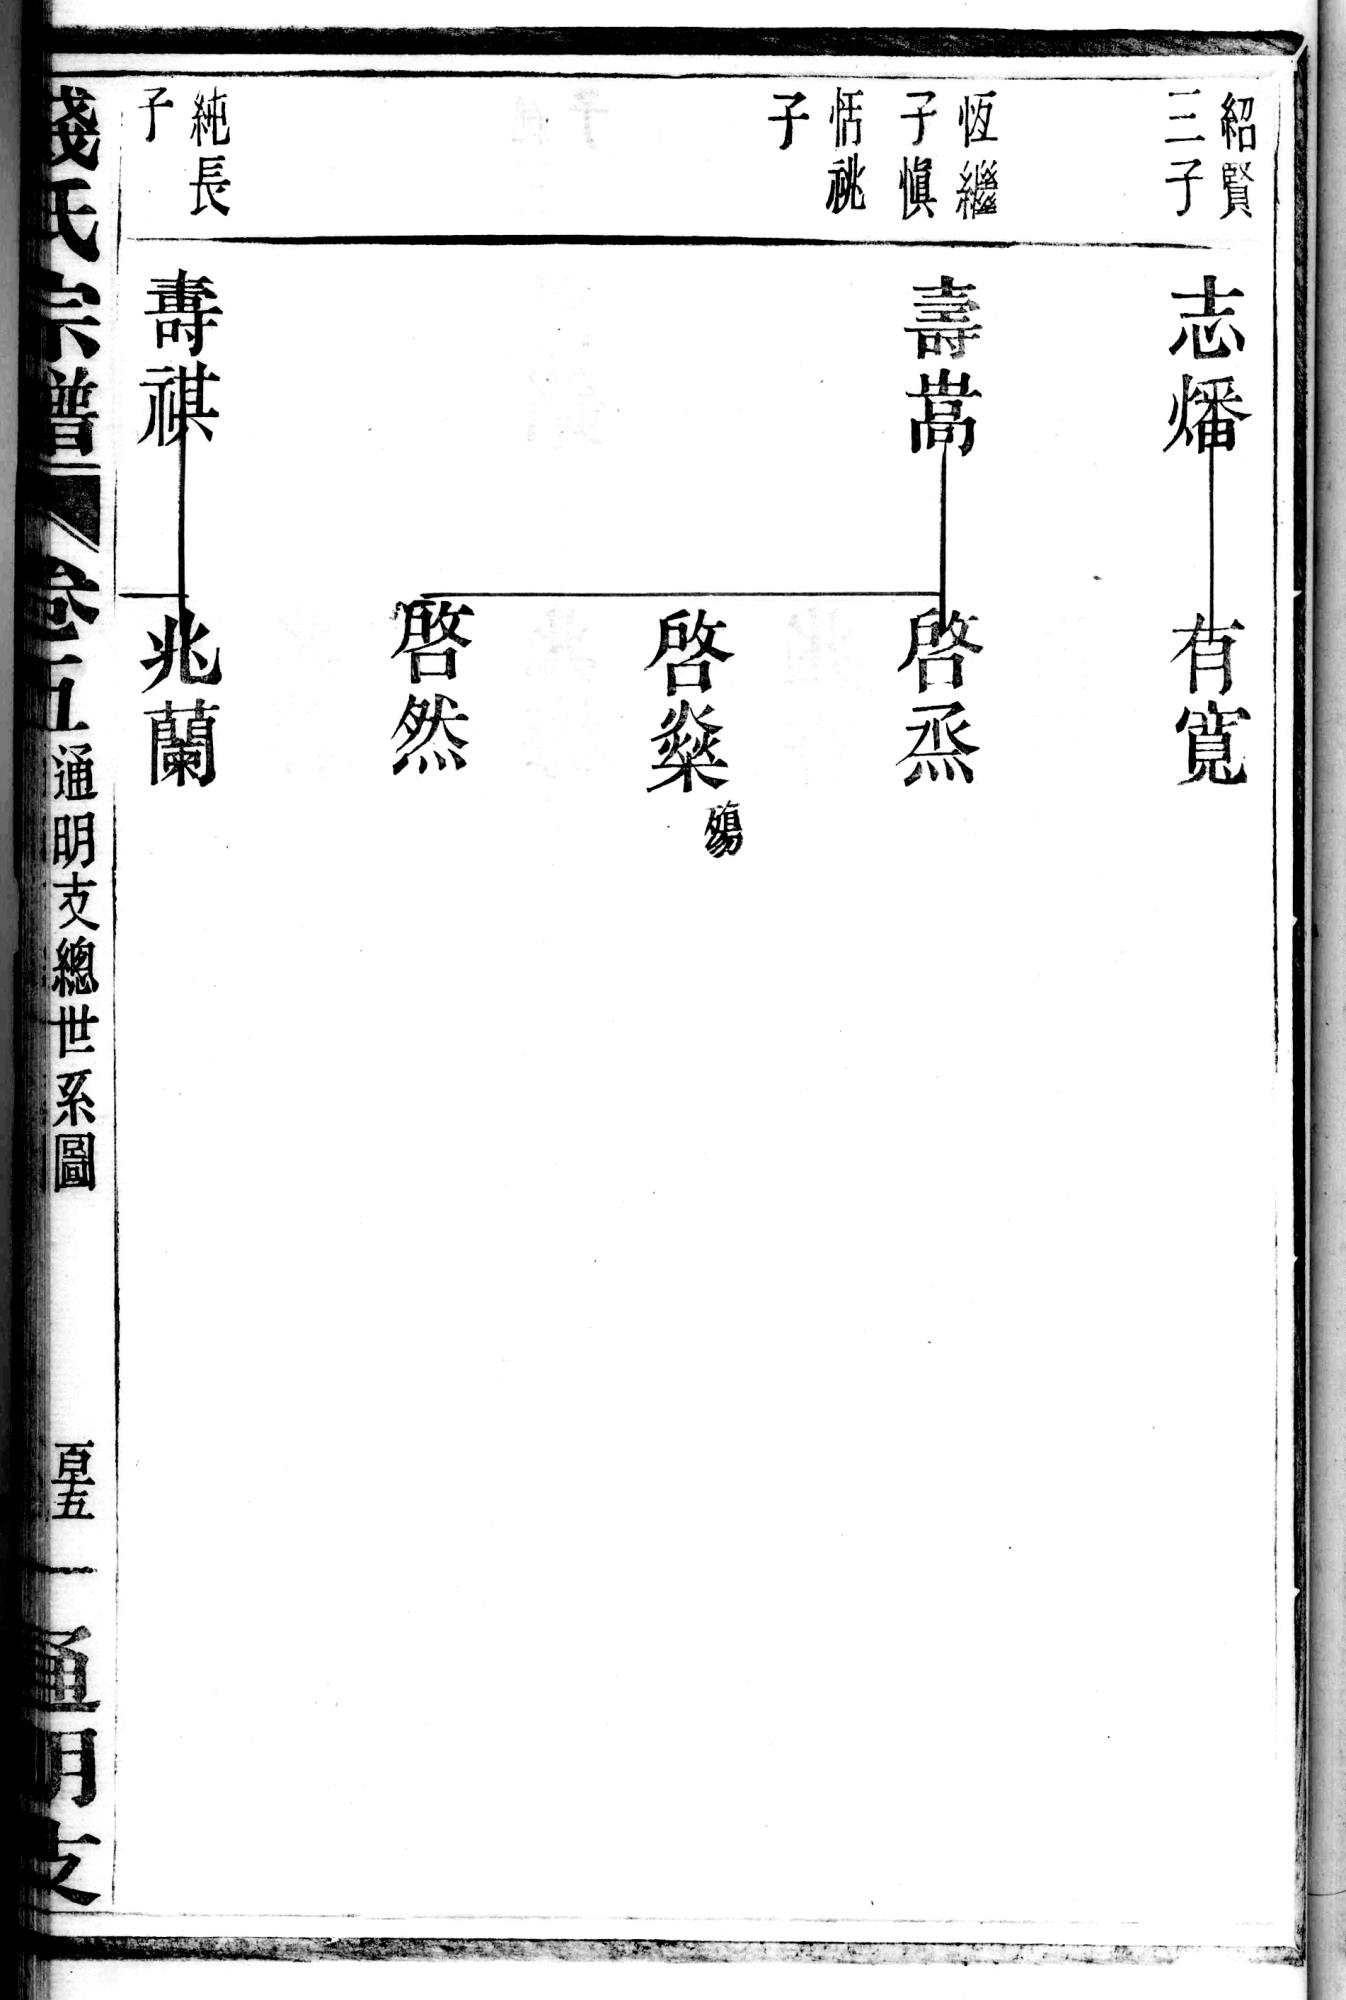 紹賢
三子
志燔
有寬
恆繼
子慎
恬祧
子
壽嵩
啓烝
啓燊
殤
啓然
純長
子
壽祺
兆蘭
錢氏宗譜
卷五
通明支總世系圖
通明支